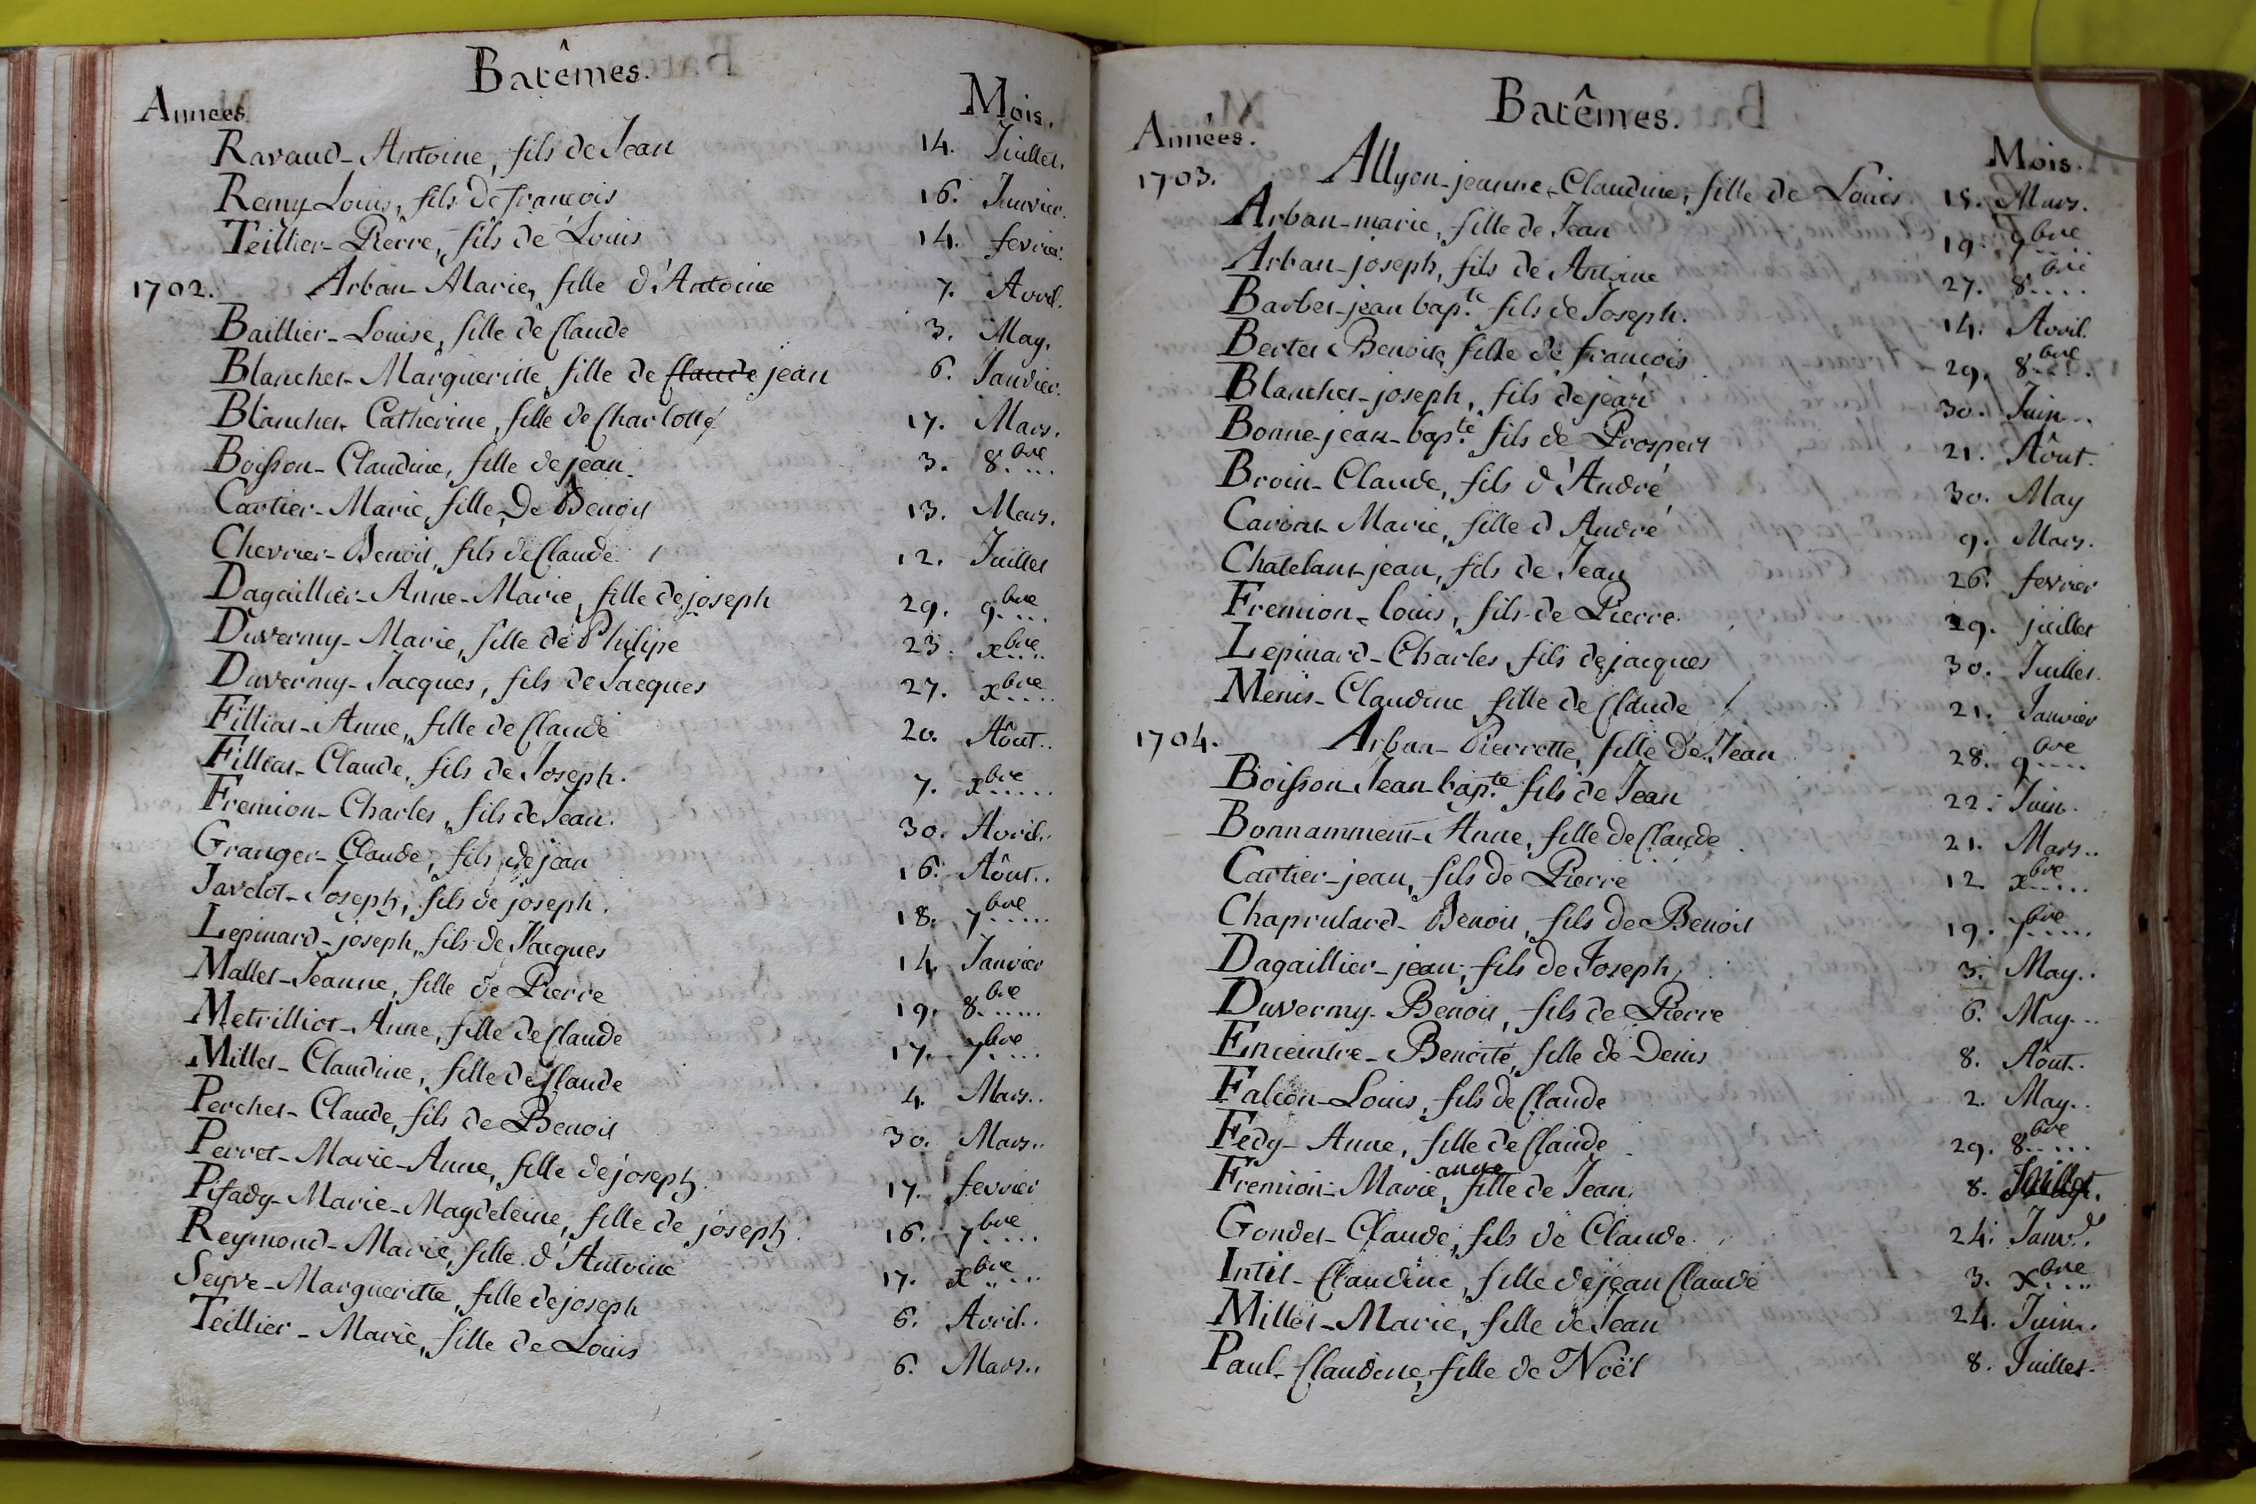 Batêmes.
Années Mois.
Ravaud - Antoine, fils de Jean 14. Juillet.
Remy Louis, fils de françois 16. Janvier.
Teillier - Pierre, fils de Louis 14. fevrier.
1702. Arban - Marie, fille d'Antoine 7. Avril.
Baillier - Louise, fille de Claude 3. May.
Blanchet - Margueritte, fille de Claude jean 6. Janvier.
Blanchet - Catherine, fille de Charlotte 17. Mars.
Boisson - Claudine, fille de jean 3. 8.bre
Cartier - Marie, fille De Benoit 13. Mars.
Chevrier - Benoit, fils de Claude 12. Juillet
Dagaillier - Anne - Marie, fille de joseph 29. 9.bre
Duvermy - Marie, fille de Philipe 23. xbre
Duvermy - Jacques, fils de Jacques 27. xbre
Filliat - Anne, fille de Claude 20. Aôut..
Filliat - Claude, fils de Joseph. 7. xbre
Fremion - Charles, fils de Jean. 30. Avril..
Granger - Claude, fils de jean 16. Aôut..
Javelot - Joseph, fils de joseph. 18. 7bre
Lepinard - joseph, fils de Jacques 14. Janvier
Mallet - Jeanne, fille de Pierre 19. 8.bre
Metrilliot - Anne, fille de Claude 17. 7bre
Millet - Claudine, fille de Claude 4. Mars..
Perchet - Claude, fils de Benoit 30. Mars..
Perret - Marie - Anne, fille de joseph. 17. fevrier
Pifady - Marie - Magdeleine, fille de joseph. 16. 7bre
Reymond - Marie, fille d'Antoine 17. xbre
Seyve - Margueritte, fille de joseph 6. Avril..
Teillier - Marie, fille de Louis 6. Mars..
Batêmes.
Années. Mois.
1703. Allyon - jeanne - Claudine, fille de Louis 15. Mars.
Arban - marie, fille de Jean 19. 9bre
Arban - joseph, fils de Antoine 27. 8.bre
Barbet - jean bap.te fils de Joseph. 14. Avril.
Bertet Benoite, fille de françois 29. 8bre
Blanchet - joseph, fils de jean 30. Juin..
Bonne - jean - bap.te fils de Prospert 21. Aôut.
Broin - Claude, fils d'André 30. May
Marie, fille d André 9. Mars.
Chatelant - jean, fils de Jean 26. fevrier
Fremion - louis, fils de Pierre. 29. juillet
Lepinard - Charles, fils de jacques 30. Juillet.
Menis - Claudine, fille de Claude 21. Janvier
1704. Arban - Pierrette, fille de Jean 28. 9bre
Boisson Jean bap.te fils de Jean 22. Juin.
Bonnamment - Anne, fille de Claude 21. Mars..
Cartier - jean, fils de Pierre 12. xbre
Chaprulard - Benoit, fils de Benoit 19. 7bre
Dagaillier - jean, fils de Joseph 3. May..
Duvermy - Benoit, fils de Pierre 6. May...
Enceintre - Benoite, fille de Denis 8. Aôut..
Falcon - Louis, fils de Claude 2. May..
Fedy - Anne, fille de Claude 29. 8bre
Fremion - Marie anne, fille de Jean 8. Juillet.
Gondet - Claude, fils de Claude 24. Janv.r
Intil - Claudine, fille de jean Claude 3. xbre
Millet - Marie, fille de Jean 24. Juin.
Paul - Claudine, fille de Noël 8. Juillet.